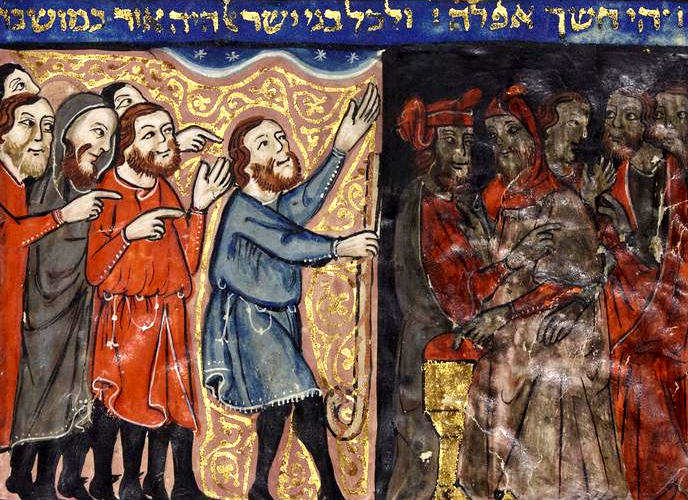 ויהי חשך אפלה׃ ולכל בני ישראל היה אור במושבתם